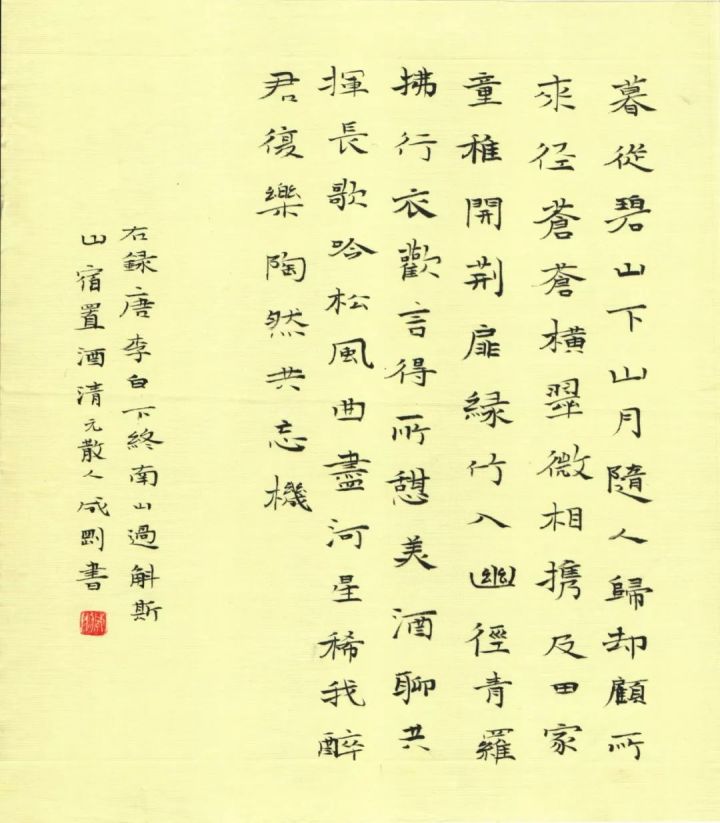 暮從碧山下山月隨人歸却顧所
來径蒼蒼橫翠微相携及田家
童稚開荆扉緑竹入幽徑青羅
拂行衣歡言得所憇美酒聊共
揮長歌吟松風曲盡河星稀我醉
君復樂陶然共忘機
右録唐李白下終南山過斛斯
山宿置酒清元散人成剛書